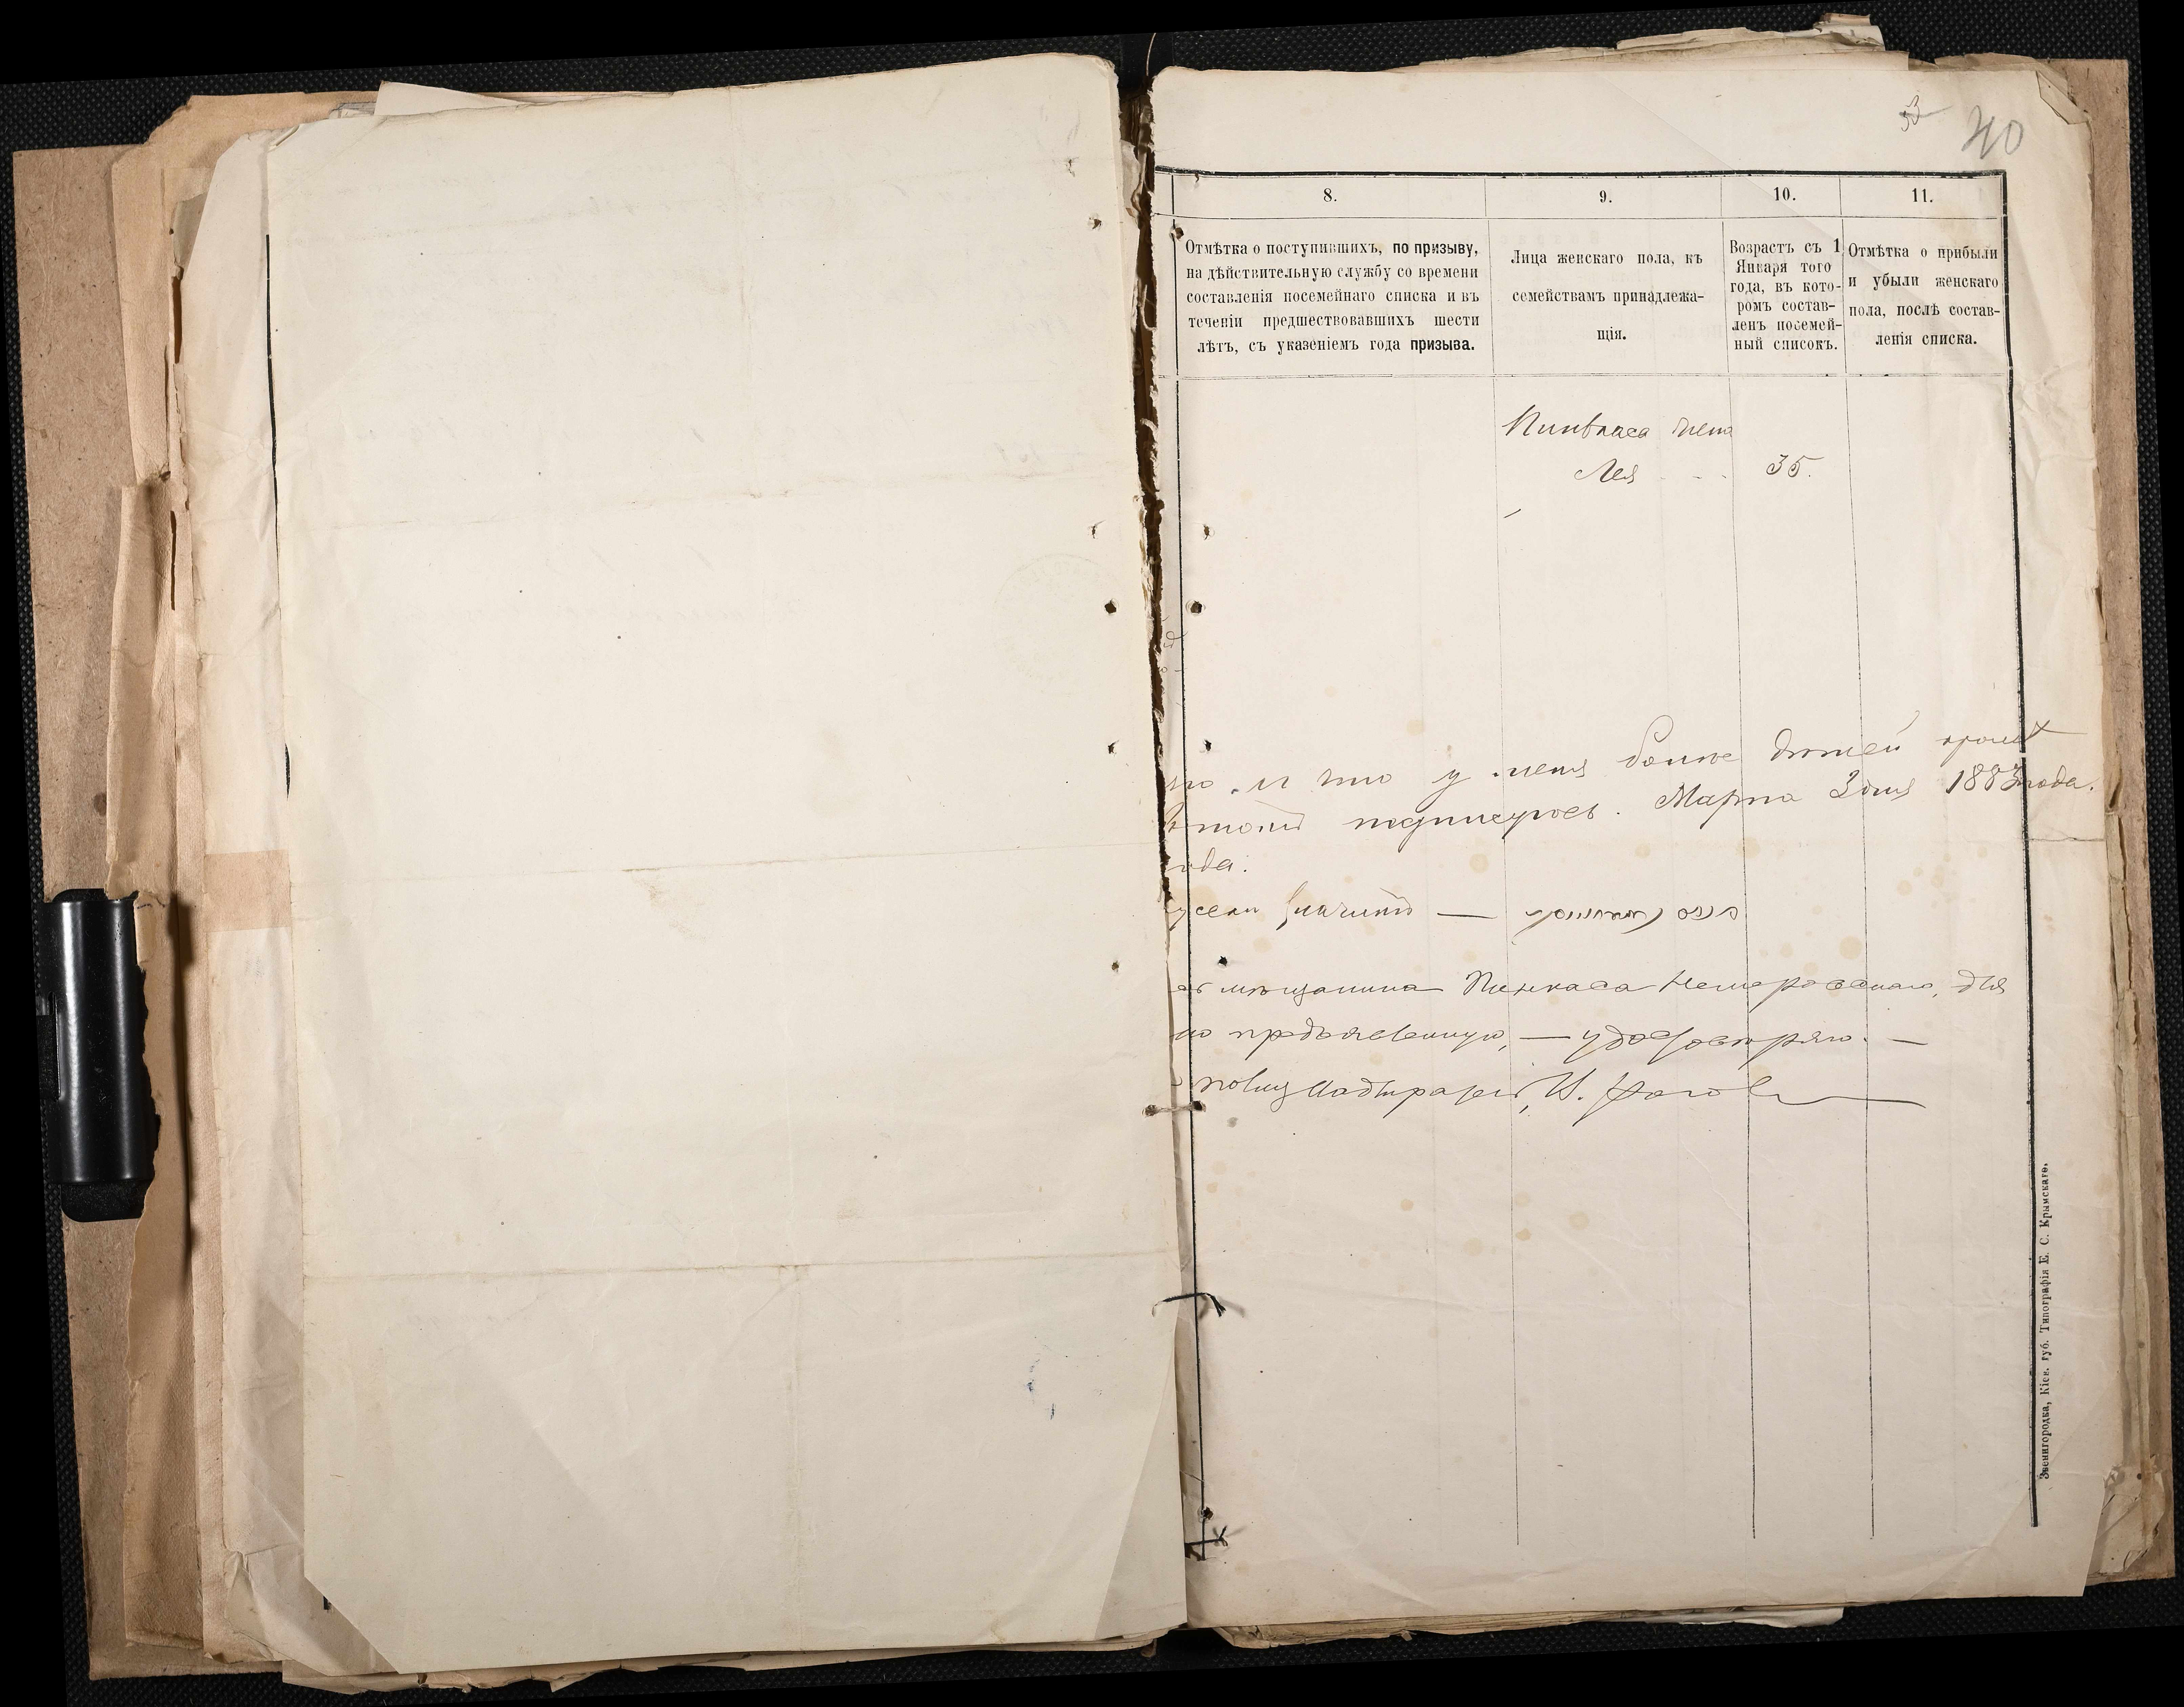 53
40
8.
9.
10.
11.
Отмѣтка о поступившихъ, по призыву,
на дѣйствительную службу со времени
составленія посемейнаго списка и въ
теченіи предшествовавшихъ шести
лѣтъ, съ указеніемъ года призыва.
Лица женскаго пола, къ
семействамъ принадлежа-
щія.
Возрастъ съ 1
Января того
года, въ кото-
ромъ состав-
ленъ посемей-
ный списокъ.
Отмѣтка о прибыли
и убыли женскаго
пола, послѣ состав-
ленія списка.
Пинкаса жена
Лея - - - 35.
и что у меня более дѣтей кромѣ
подписуюсь. Марта 3 дня 1883 года.
ода.
значитъ —
мѣщанина Пинкаса Немировскаго, для
предъявленную, — удостовѣряю. —
Звенигородка, Кіев. губ. Типографія Е. С. Крымскаго.